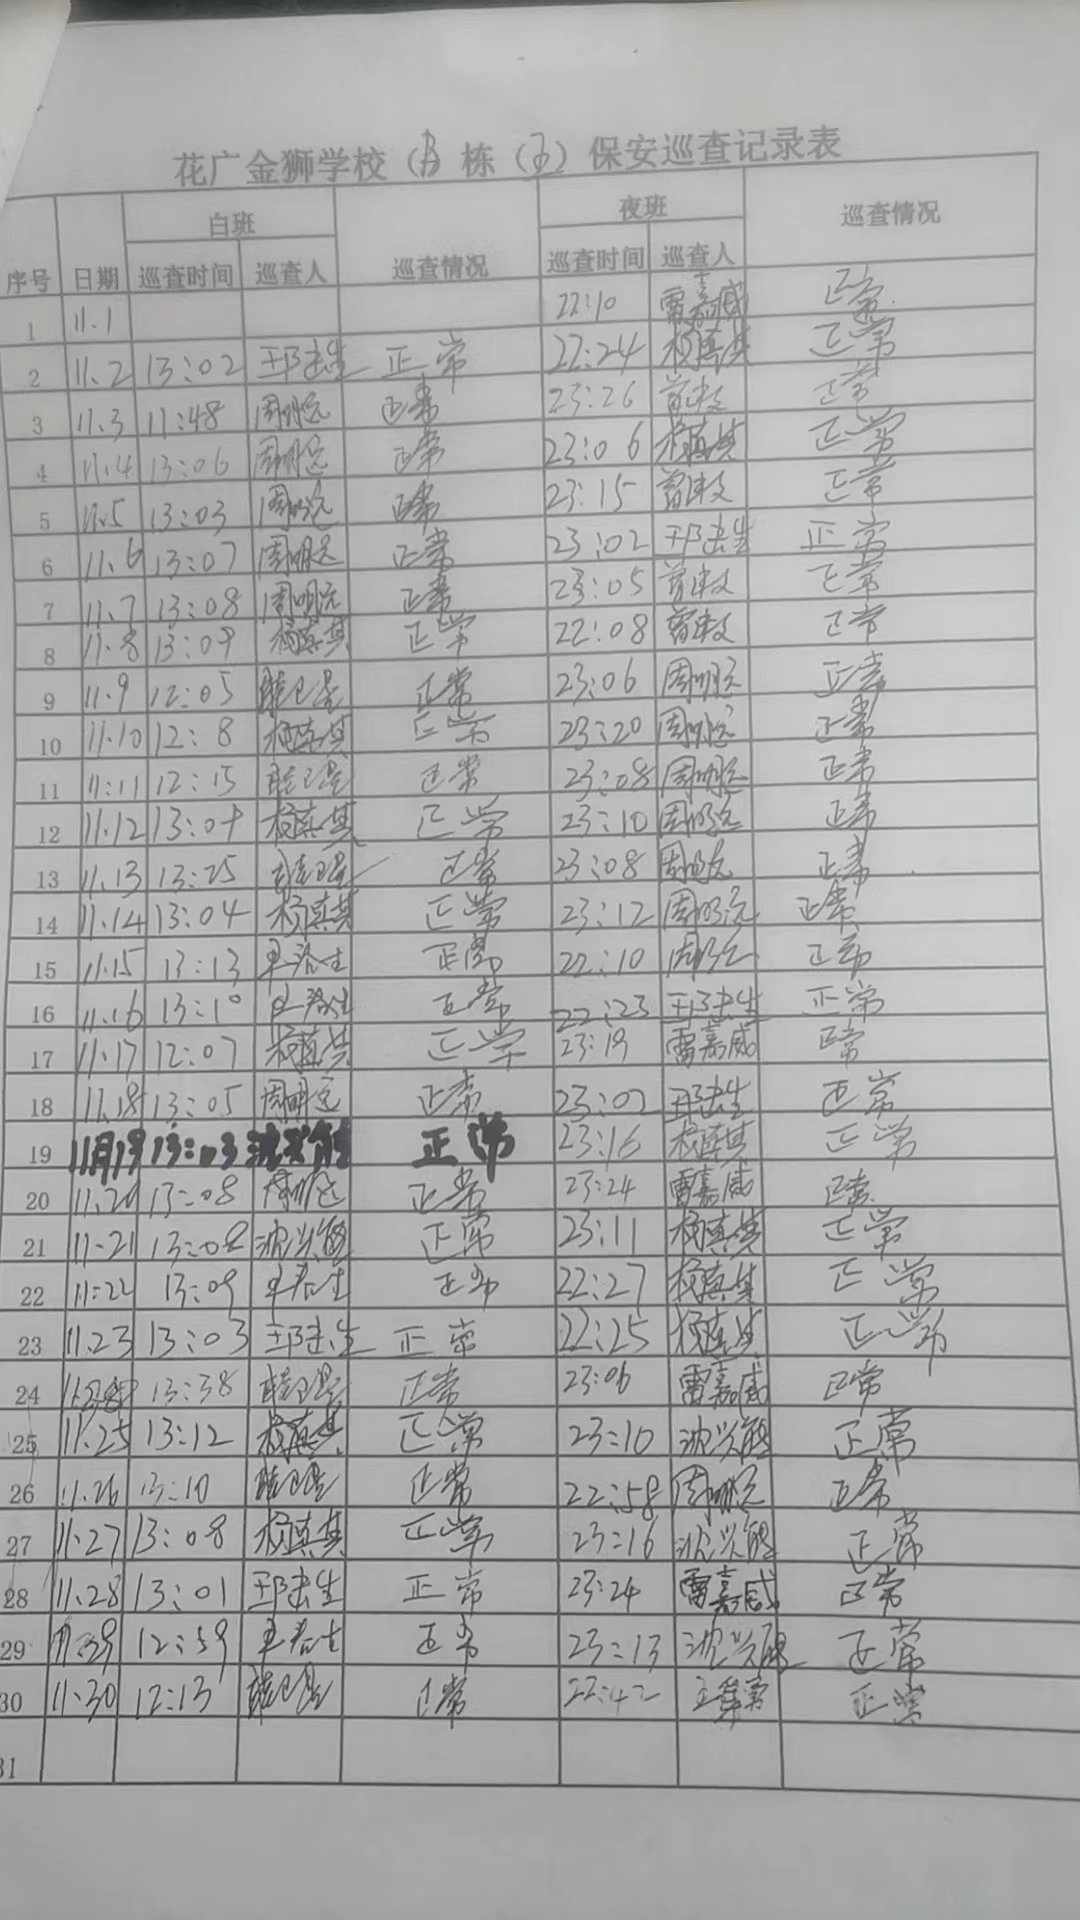 花广金狮学校（B 栋（ ）保安巡查记录表
白班 夜班
序号 日期 巡查时间 巡查人 巡查情况 巡查时间 巡查人 巡查情况
1 11.1 22:10 雷嘉威 正常
2 11.2 13:02 正常 22:24 杨真其 正常
3 11.3 11:48 周明远 正常 23:26 正常
4 11.4 13:06 周明远 正常 23:06 杨真其 正常
5 11.5 13:03 周明远 正常 23:15 正常
6 11.6 13:07 周明远 正常 23:02 正常
7 11.7 13:08 周明远 正常 23:05 正常
8 11.8 13:09 杨真其 正常 22:08 正常
9 11.9 12:05 正常 23:06 周明远 正常
10 11.10 12:8 杨真其 正常 23:20 周明远 正常
11 11:11 12:15 正常 23:08 周明远 正常
12 11.12 13:04 杨真其 正常 23:10 周明远 正常
13 11.13 13:25 正常 23:08 周明远 正常
14 11.14 13:04 杨真其 正常 23:12 周明远 正常
15 11.15 13:13 正常 22:10 周明远 正常
16 11.16 13:10 正常 22:23 正常
17 11.17 12:07 杨真其 正常 23:19 雷嘉威 正常
18 11.18 13:05 周明远 正常 23:02 正常
19 11月19 13:03 沈兴能 正常 23:16 杨真其 正常
20 11.20 13:08 周明远 正常 23:24 雷嘉威 正常
21 11.21 13:08 沈兴能 正常 23:11 杨真其 正常
22 11:22 13:09 正常 22:27 杨真其 正常
23 11.23 13:03 正常 22:25 杨真其 正常
24 13:38 正常 23:06 雷嘉威 正常
25 11.25 13:12 杨真其 正常 23:10 沈兴能 正常
26 11.26 13:10 正常 22:58 周明远 正常
27 11.27 13:08 杨真其 正常 23:16 沈兴能 正常
28 11.28 13:01 正常 23:24 雷嘉威 正常
29 11.29 12:59 正常 23:13 沈兴能 正常
30 11.30 12:13 正常 22:42 正常
31